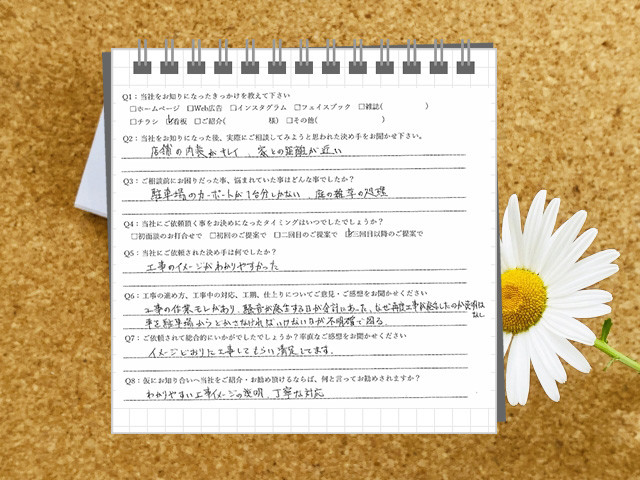 Q1：当社をお知りになったきっかけを教えて下さい
□ホームページ　□Web広告　□インスタグラム　□フェイスブック　□雑誌(　　　　　)
□チラシ　☑看板　□ご紹介(　　　　　様)　□その他(　　　　　　　　)
Q2：当社をお知りになった後、実際にご相談してみようと思われた決め手をお聞かせ下さい。
店舗の内装がキレイ、家との距離が近い
Q3：ご相談前にお困りだった事、悩まれていた事はどんな事でしたか？
駐車場のカーポートが1台分しかない、庭の雑草の処理
Q4：当社にご依頼頂く事をお決めになったタイミングはいつでしたでしょうか？
□初面談のお打合せで　□初回のご提案で　□二回目のご提案で　☑三回目以降のご提案で
Q5：当社にご依頼された決め手は何でしたか？
工事のイメージがわかりやすかった
Q6：工事の進め方、工事中の対応、工期、仕上りについてご意見・ご感想をお聞かせください
工事の作業モレがあり、騒音が発生する日が余計にあった。なぜ再度工事が発生したのか説明は
なし
車を駐車場からどかさなければいけない日が不明確で困る
Q7：ご依頼されて総合的にいかがでしたでしょうか？率直なご感想をお聞かせください
イメージどおりに工事してもらい満足してます。
Q8：仮にお知り合いへ当社をご紹介・お勧め頂けるならば、何と言ってお勧めされますか？
わかりやすい工事イメージの説明、丁寧な対応